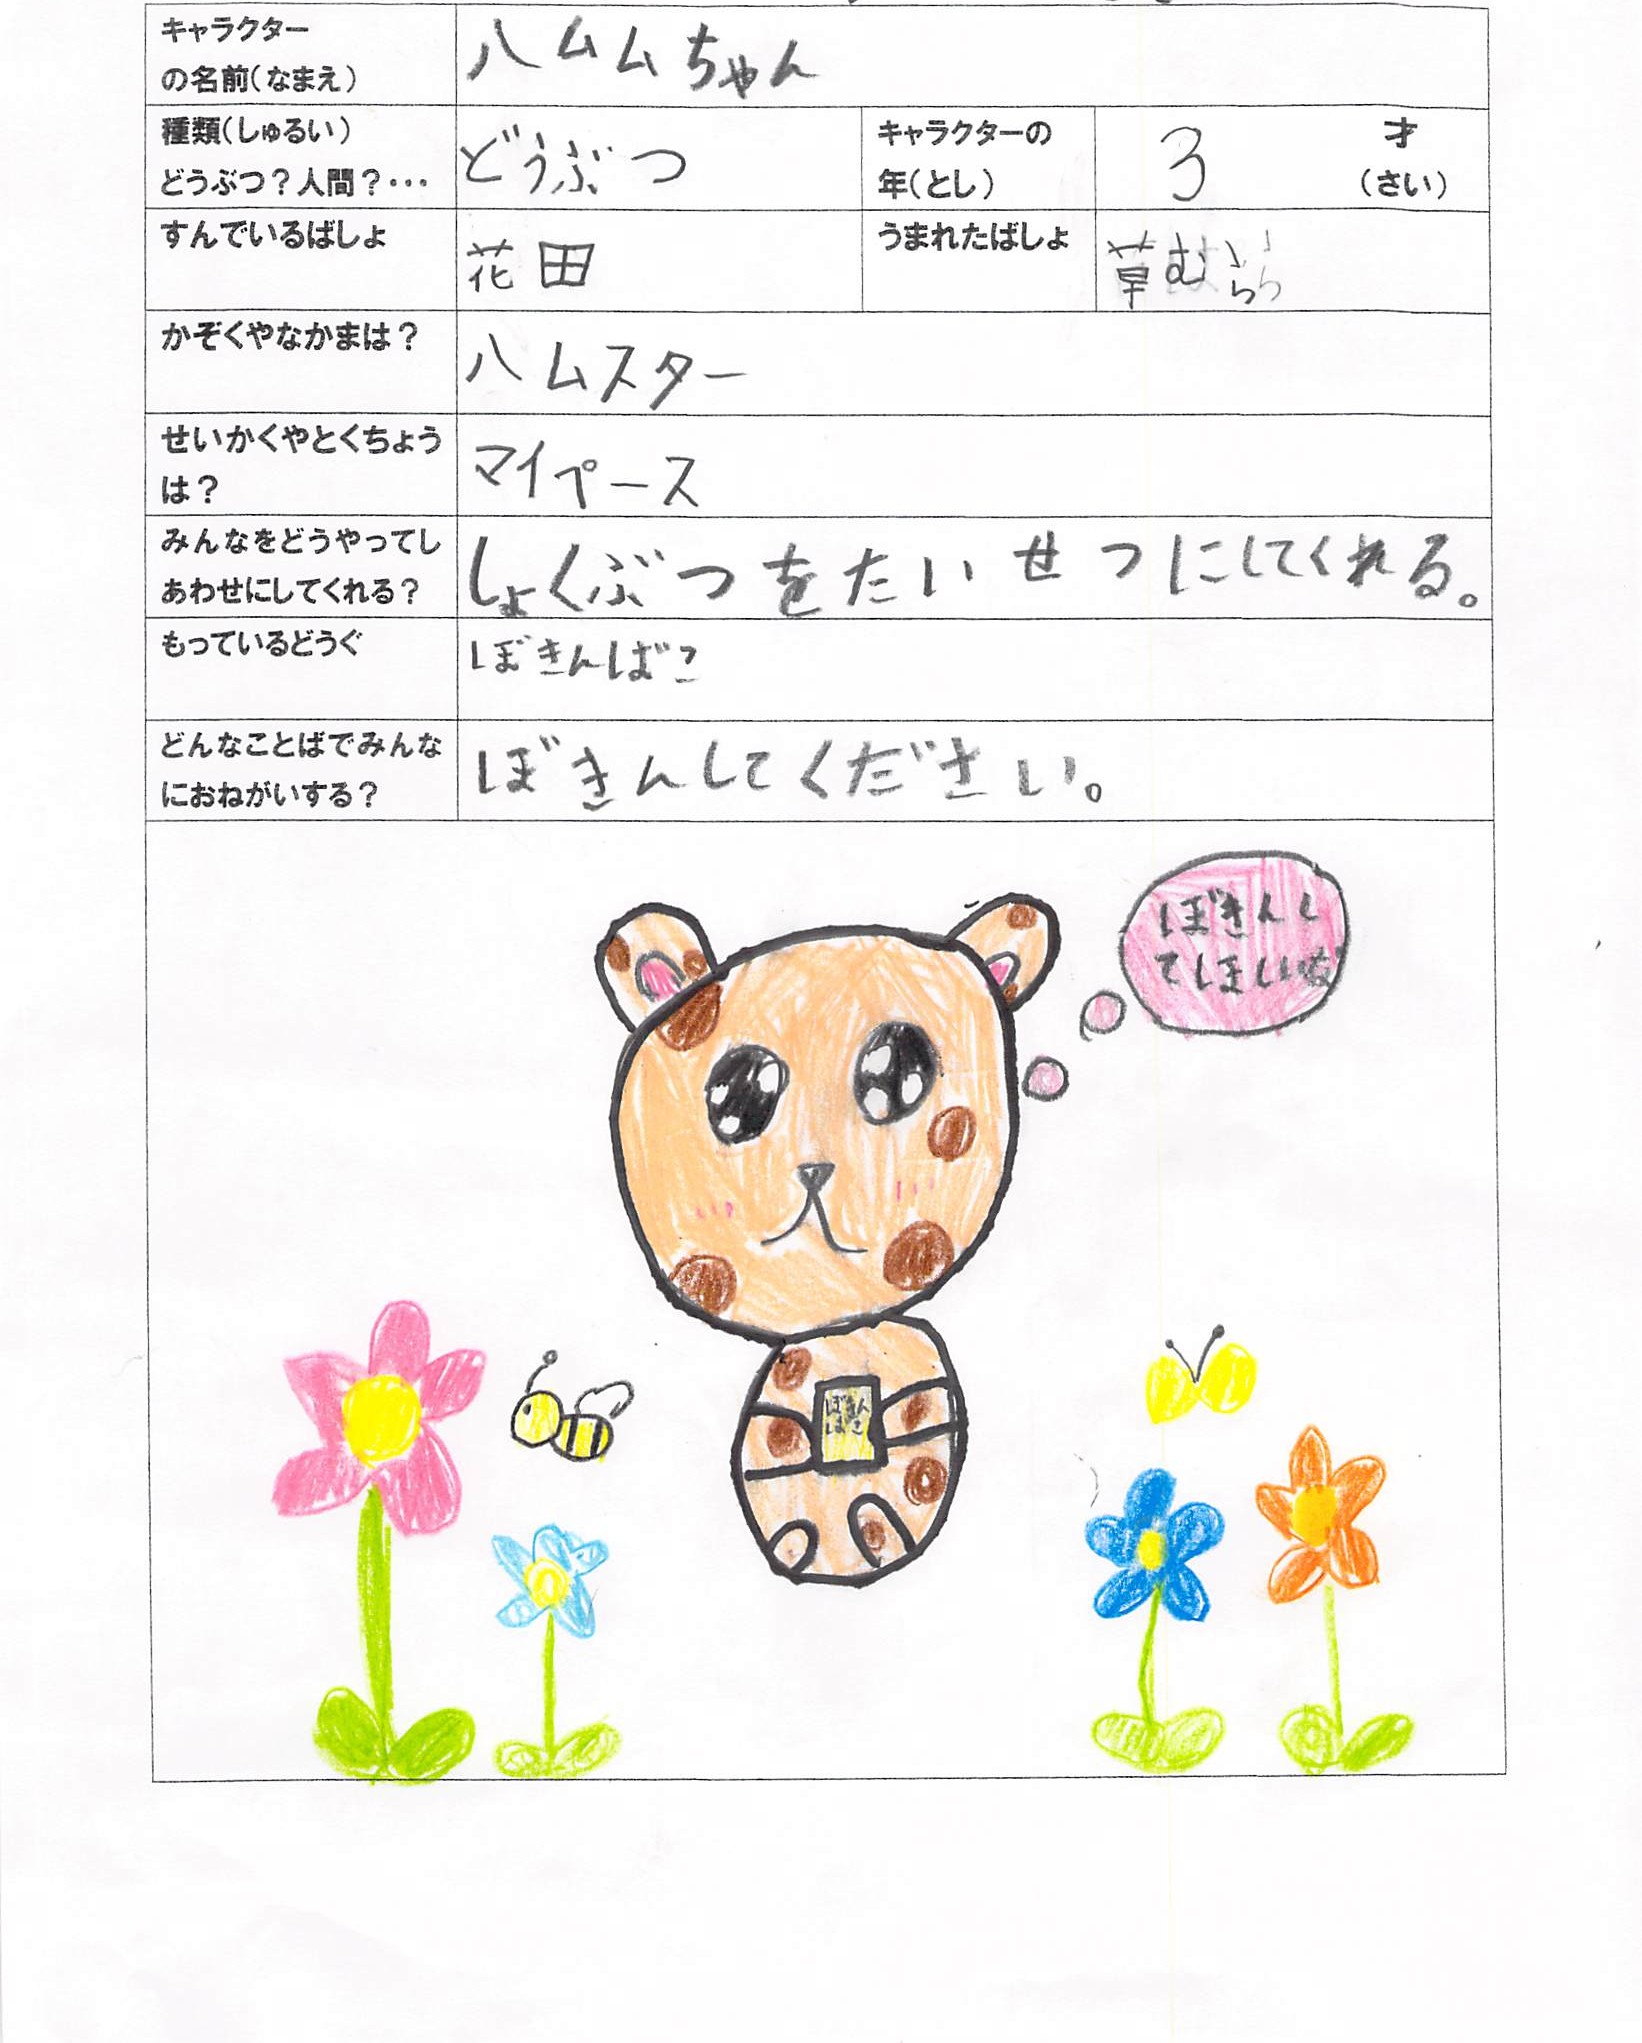 キャラクター
の名前(なまえ)
ハムムちゃん
種類(しゅるい)
どうぶつ?人間?・・・
どうぶつ
キャラクターの
年(とし)
3
才
(さい)
すんでいるばしょ
花田
うまれたばしょ
草むら
かぞくやなかまは?
ハムスター
せいかくやとくちょう
は?
マイペース
みんなをどうやってし
あわせにしてくれる?
しょくぶつをたいせつにしてくれる。
もっているどうぐ
ぼきんばこ
どんなことばでみんな
におねがいする?
ぼきんしてください。
ぼきんし
てほしいな
ぼきん
ばこ